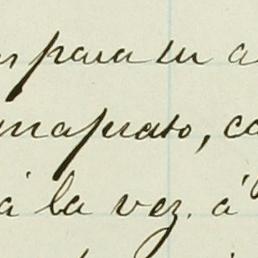 para su a
maparato, co
á la vez. á